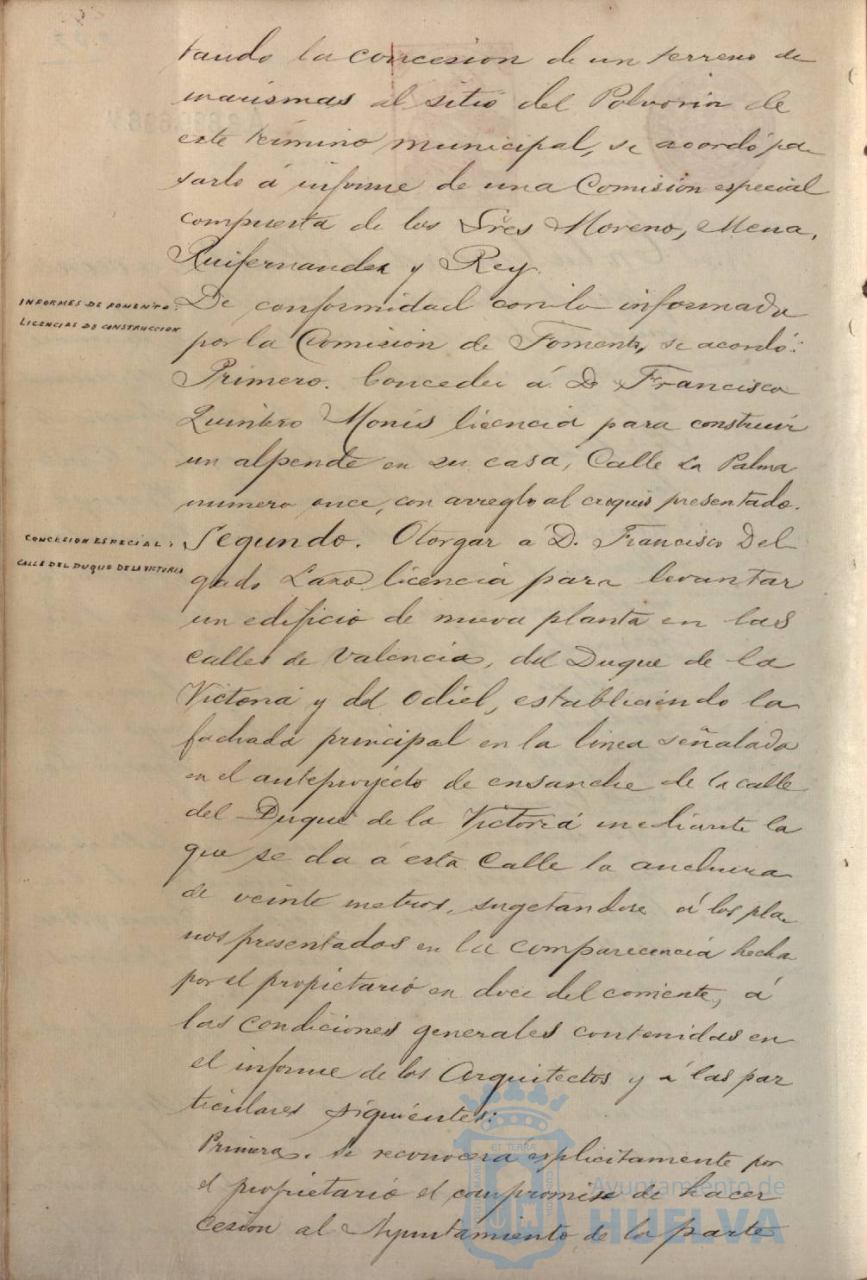 tando la concesion de un terreno de
marismas al sitio del Polvorin de
este término municipal, se acordó pa-
sarlo á informe de una Comision especial
compuesta de los Sres Moreno, Mena,
Ruifernandez y Rey.
INFORMES DE FOMENTO.
LICENCIAS DE CONSTRUCCION
De conformidad con lo informado
por la Comision de Fomento, se acordó:
Primero. Conceder á D. Francisco
Quintero Monis licencia para construir
un alpende en su casa, Calle La Palma
numero once, con arreglo al croquis presentado.
CONCESION ESPECIAL:
CALLE DEL DUQUE DE LA VICTORIA
Segundo. Otorgar a D. Francisco Del
gado Lazo licencia para levantar
un edificio de nueva planta en las
calles de Valencia, del Duque de la
Victoria y del Odiel, estableciendo la
fachada principal en la linea señalada
en el anteproyecto de ensanche de la calle
del Duque de la Victoria mediante la
que se da á esta Calle la anchura
de veinte metros, sugetandose á los pla-
nos presentados en la comparecencia hecha
por el propietario en doce del corriente, á
las condiciones generales contenidas en
el informe de los Arquitectos y á las par
ticulares siguientes:
Primera. Se reconocerá esplicitamente por
el propietario el compromiso de hacer
cesion al Ayuntamiento de la parte
Ayuntamiento de
HUELVA